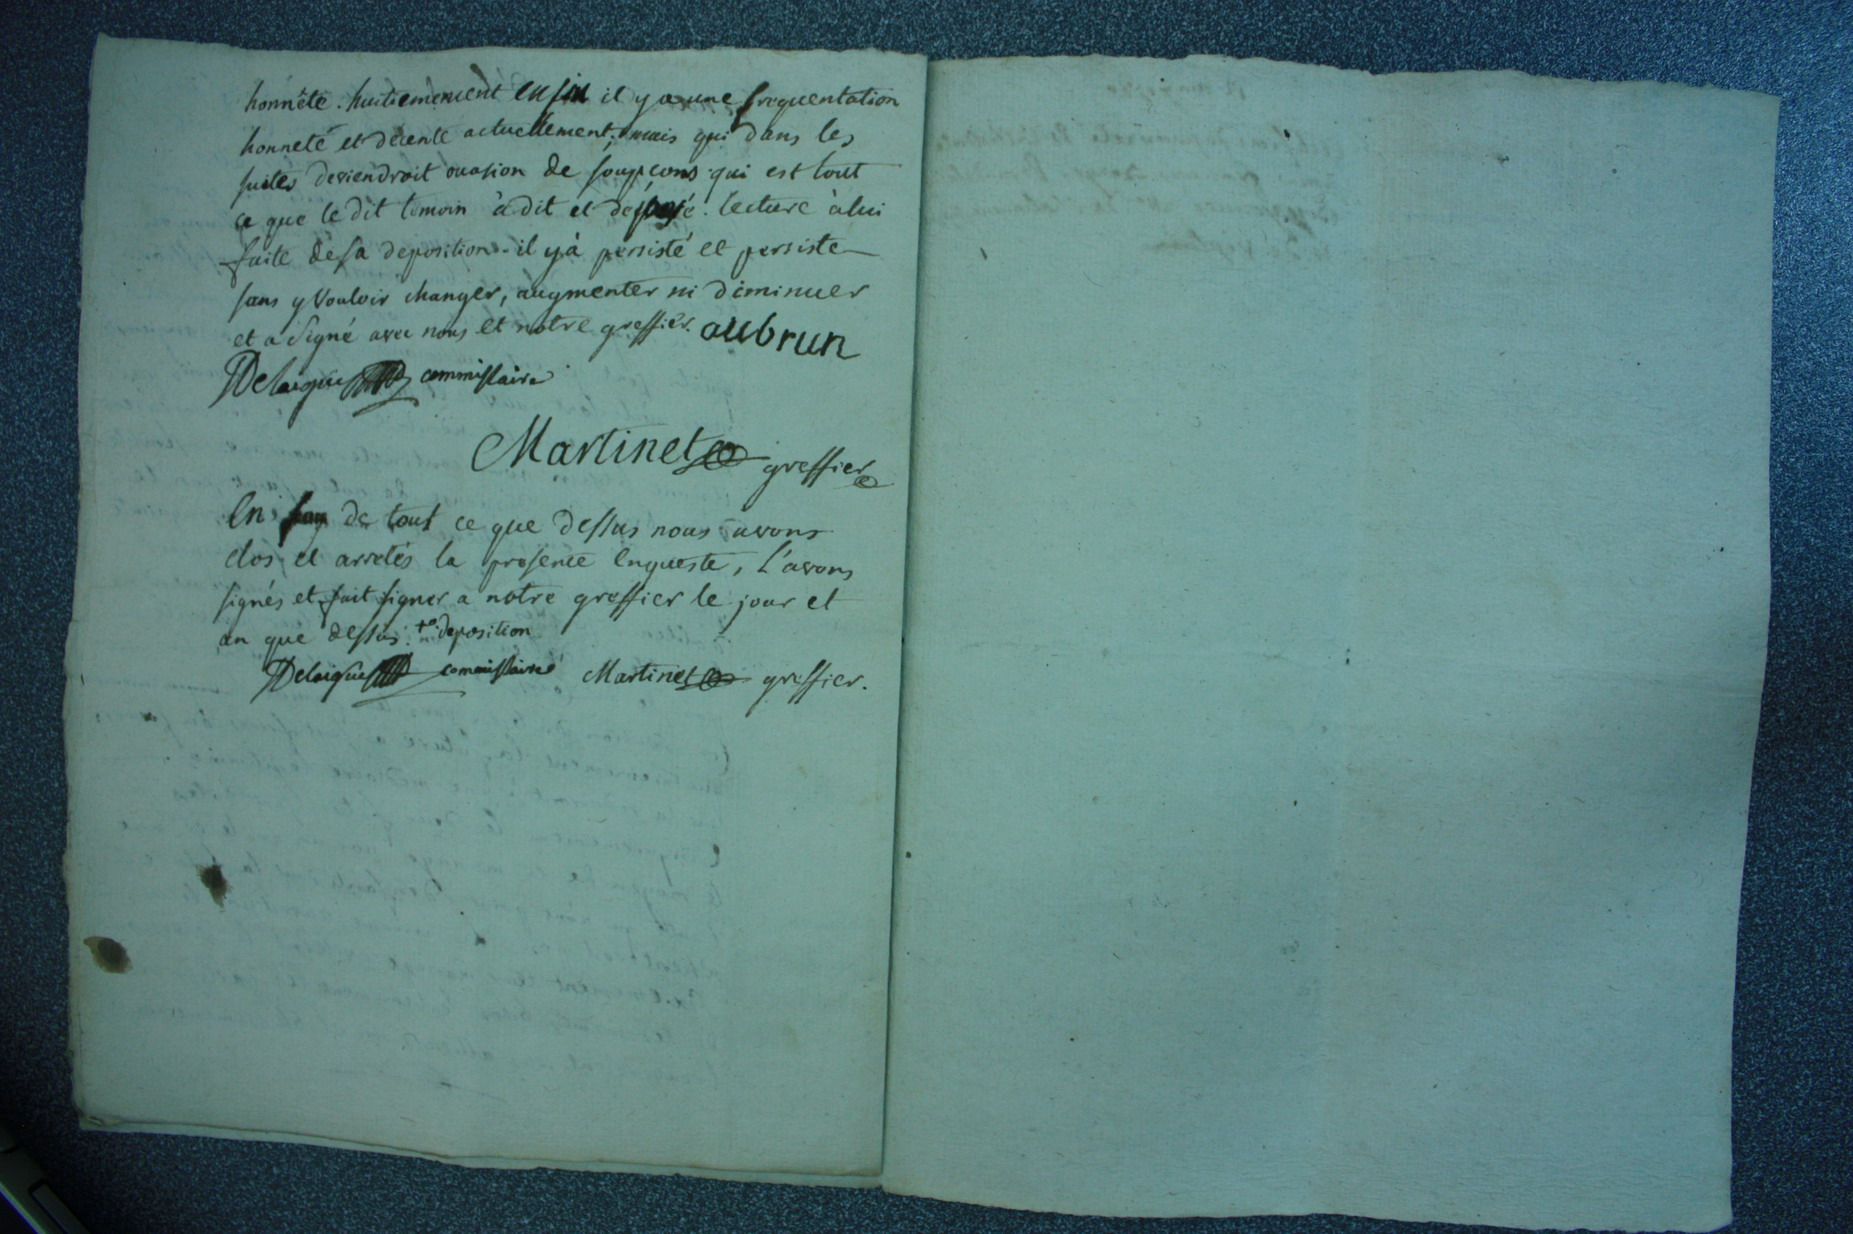 honnête. huitiemement enfin il y a une frequentation
honneté et décente actuellement, mais qui dans les
suites deviendroit ouasion de soupçons qui est tout
ce que le dit temoin à dit et déposé. lecture à lui
faite de sa deposition. il y à persisté et persiste
sans y vouloir changer, augmenter ni diminuer
et a signé avec nous et notre greffier. aubrun
Delaigue commissaire
Martinet greffier
En foy de tout ce que dessus nous avons
clos et arretés la presente enqueste, l'avons
signés et fait signer a notre greffier le jour et
an que dessus. deposition
Delaigue commissaire Martinet greffier.